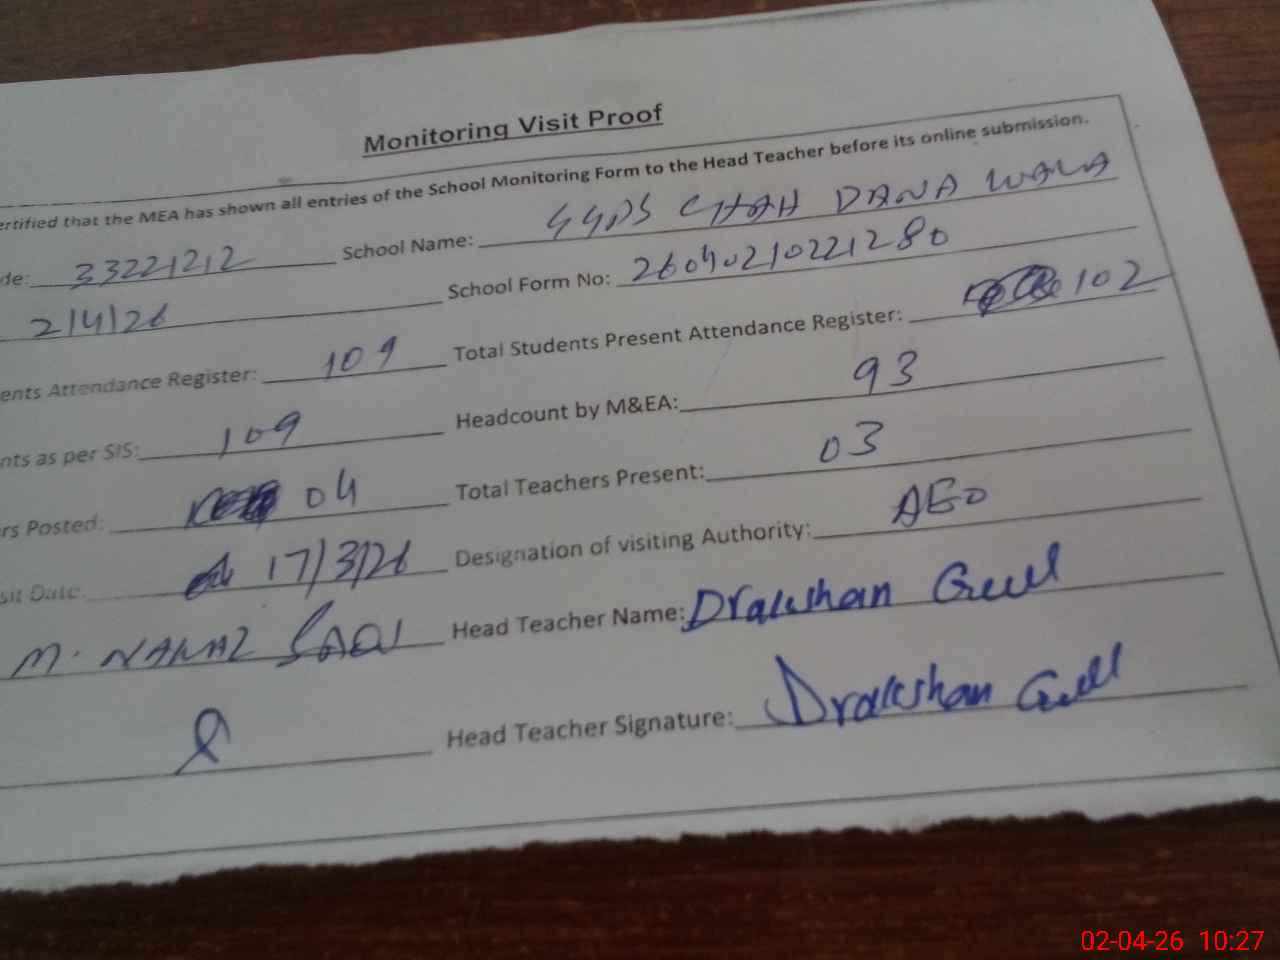 Monitoring Visit Proof
ertified that the MEA has shown all entries of the School Monitoring Form to the Head Teacher before its online submission.
de: 33221212 School Name: GGPS CHAH DANA WALA
2/4/26 School Form No: 26040210221280
ents Attendance Register: 109 Total Students Present Attendance Register: 102
nts as per SIS: 109 Headcount by M&EA: 93
rs Posted: 04 Total Teachers Present: 03
sit Date: 17/3/26 Designation of visiting Authority: AEO
M. NAWAZ Head Teacher Name: Drakshan Gull
Head Teacher Signature: Drakshan Gull
02-04-26 10:27